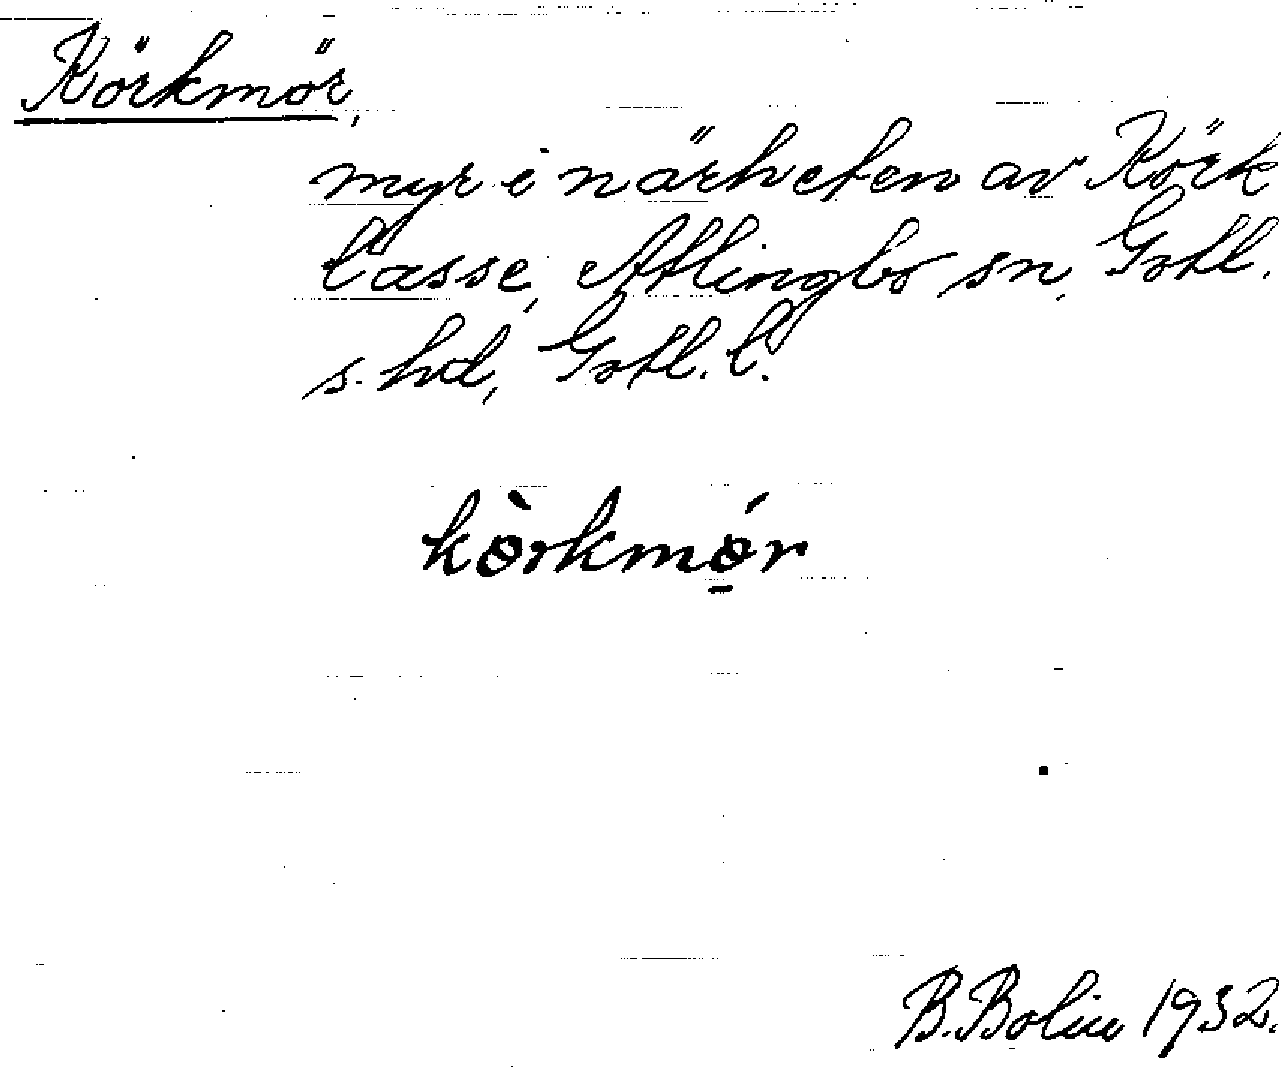 Körkmör,
myr i närheten av Körk
lasse, Atlingbo sn, Gotl.
s. hd, Gotl. l.
körkmör
B. Bolin 1932.